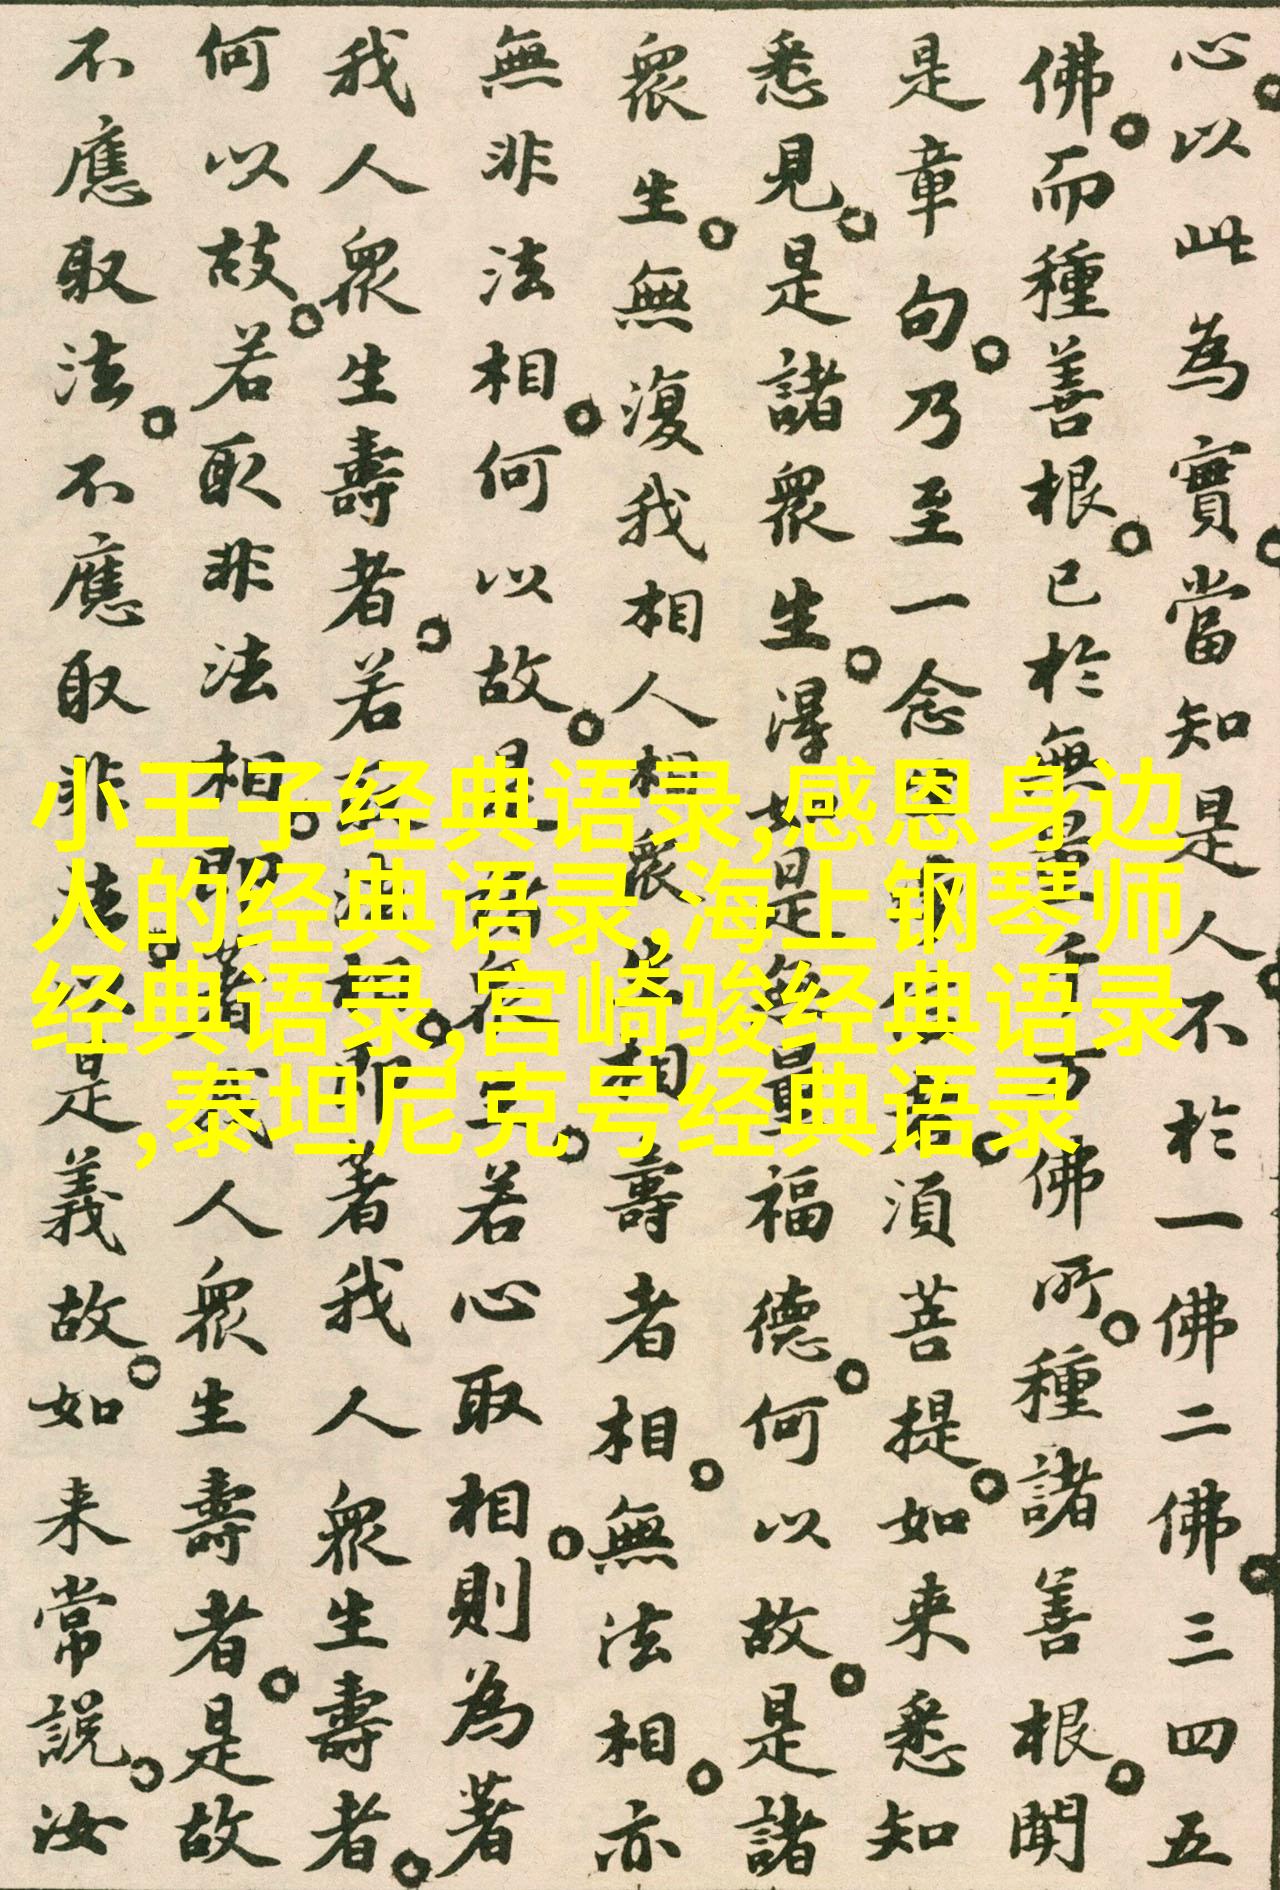 心。以此為實。當知是人。不於一佛二佛。三四五
佛。而種善根。已於無量千万佛所。種諸善根。聞
是章句。乃至一念生淨信者。須菩提。如来悉知
悉見。是諸眾生。得如是無量福德。何以故。是諸
眾生。無復我相人相眾生相壽者相。無法相。亦
無非法相。何以故。是諸眾生。若心取相。則為著
我人眾生壽者。若取法相。即著我人眾生壽者。
何以故。若取非法相。即著我人眾生壽者。是故
不應取法。不應取非法。以是義故。如来常説。汝
小王子经典语录,感恩身边
人的经典语录,海上钢琴师
经典语录,宫崎骏经典语录
,泰坦尼克号经典语录